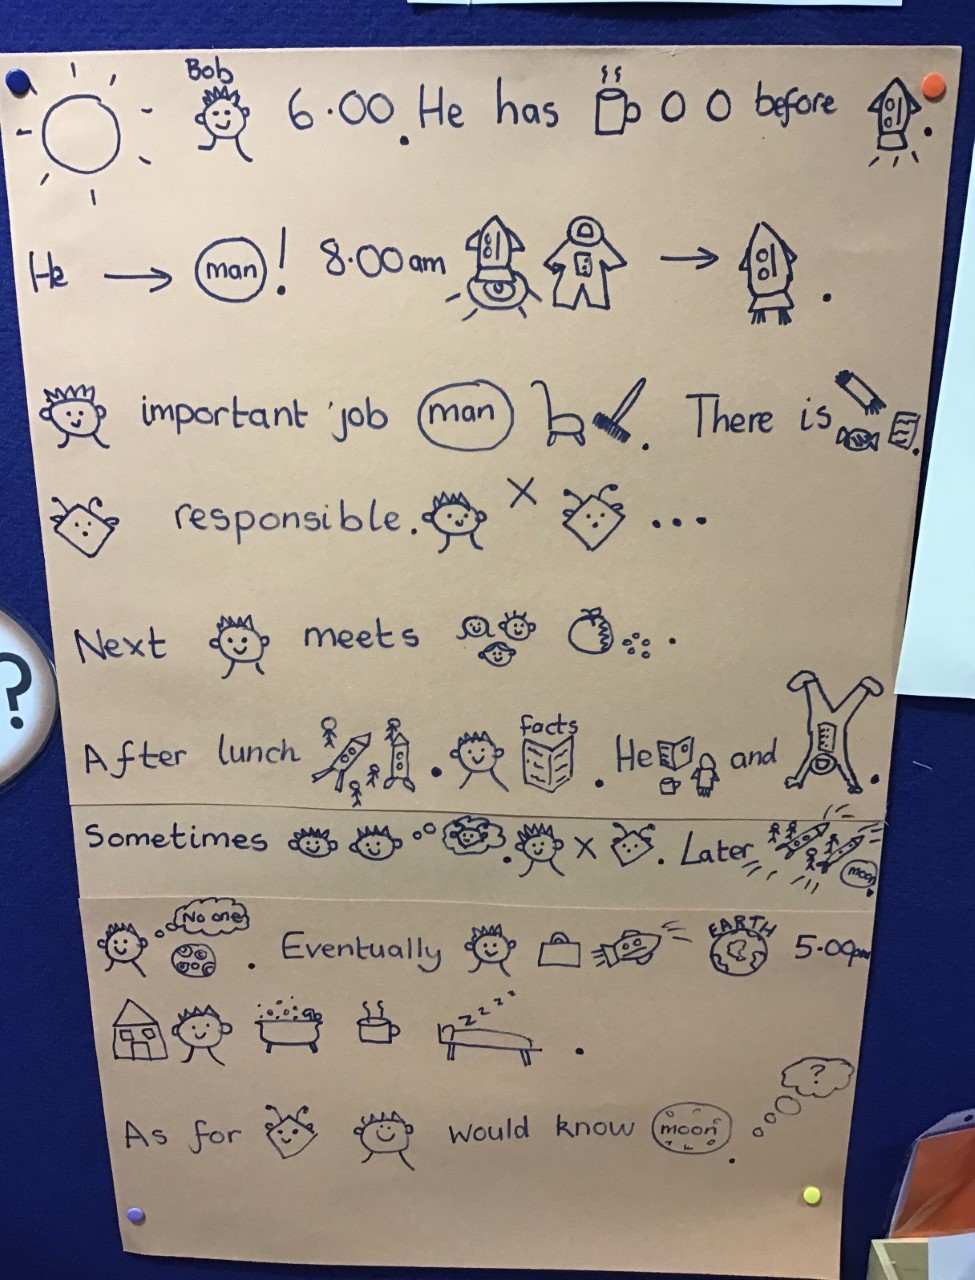 Bob
6.00. He has 0 0 before .
He → man ! 8.00am → .
important job man . There is .
responsible. X ...
Next meets .
After lunch . facts . He and .
Sometimes . X . Later moon .
No one . Eventually EARTH 5.00pm
z z z z .
As for would know moon . ?
?